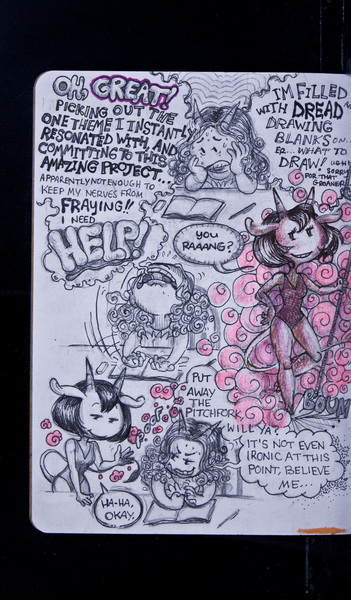 OH, GREAT!
PICKING OUT THE
ONE THEME I INSTANTLY
RESONATED WITH, AND
COMMITTING TO THIS
AMAZING PROJECT...
APPARENTLY NOT ENOUGH TO
KEEP MY NERVES FROM
FRAYING!!
I NEED
HELP!
I'M FILLED
WITH DREAD
DRAWING
BLANKS ON...
ER... WHAT TO
DRAW!
UGH
SORRY
FOR THAT
GROANER
YOU
RAAANG?
PUT
AWAY
THE
PITCHFORK,
WILL YA?
IT'S NOT EVEN
IRONIC AT THIS
POINT, BELIEVE
ME...
HA-HA,
OKAY.